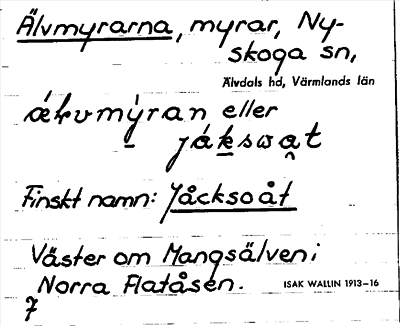 Älvmyrarna, myrar, Ny-
skoga sn,
Älvdals hd, Värmlands län
ækvmỳran eller
jákswat
Finskt namn: Jåcksoåt
Väster om Mangsälven i
Norra Flatåsen.
ISAK WALLIN 1913–16
7